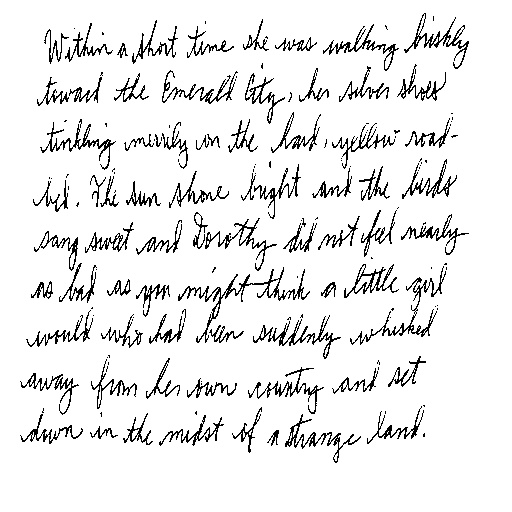 Within a short time she was walking briskly
toward the Emerald City, her silver shoes
tinkling merrily on the hard, yellow road-
bed. The sun shone bright and the birds
sang sweet and Dorothy did not feel nearly
as bad as you might think a little girl
would who had been suddenly whisked
away from her own country and set
down in the midst of a strange land.